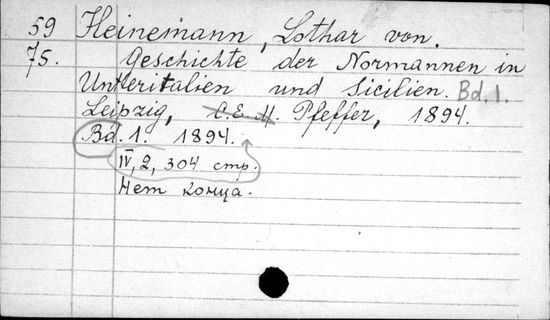 59 Heinemann, Lothar von.
75. Geschichte der Normannen in
Unteritalien und Sicilien. Bd. 1.
Leipzig, C.E.M. Pfeffer, 1894.
Bd. 1. 1894.
IV, 2, 304 стр.
Нет конца.